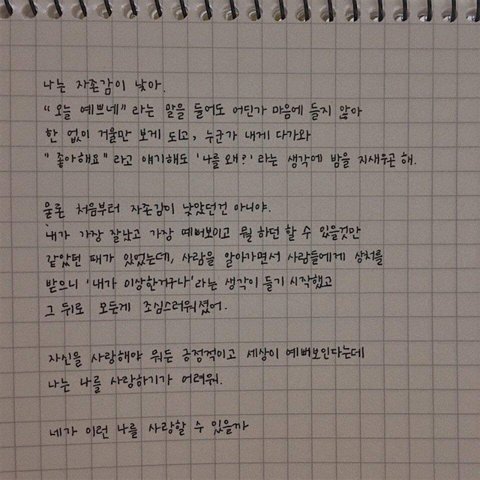 나는 자존감이 낮아.
"오늘 예쁘네" 라는 말을 들어도 어딘가 마음에 들지 않아
한 없이 거울만 보게 되고, 누군가 내게 다가와
"좋아해요" 라고 얘기해도 '나를 왜?' 라는 생각에 밤을 지새우곤 해.
물론 처음부터 자존감이 낮았던건 아니야.
내가 가장 잘났고 가장 예뻐보이고 뭘 하던 할 수 있을것만
같았던 때가 있었는데, 사람을 알아가면서 사람들에게 상처를
받으니 '내가 이상한거구나' 라는 생각이 들기 시작했고
그 뒤로 모든게 조심스러워졌어.
자신을 사랑해야 뭐든 긍정적이고 세상이 예뻐보인다는데
나는 나를 사랑하기가 어려워.
네가 이런 나를 사랑할 수 있을까